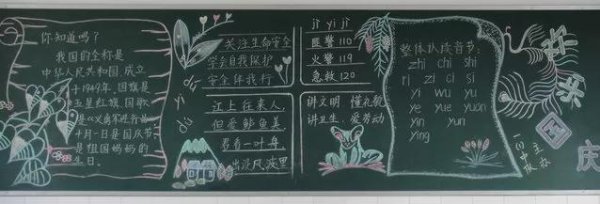 你知道吗？
我国的全称是
中华人民共和国成立
于1949年，国旗是
五星红旗，国歌
是《义勇军进行曲》
十月一日是国庆节
是祖国妈妈的
生日。
dú
yi
dú
关注生命安全
学会自我保护
安全伴我行
江上往来人，
但爱鲈鱼美。
君看一叶舟，
出没风波里
jì yì jì
匪警110
火警119
急救120
讲文明 懂礼貌
讲卫生 爱劳动
整体认读音节：
zhi chi shi
ri zi ci si
yi wu yu
ye yue yuan
yin yun
ying
欢乐国庆
一（1）中队
主办